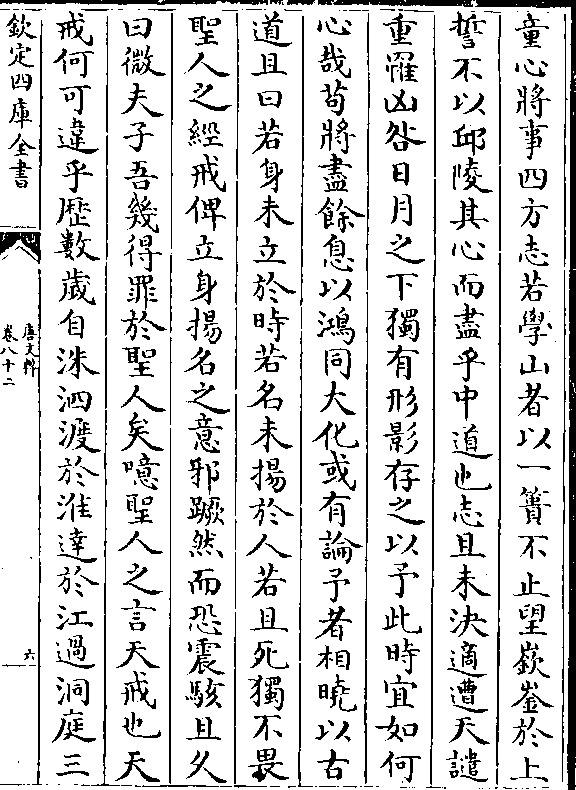 童心將事四方志若學山者以一簣不止望嶔崟於上
誓不以邱陵其心而盡乎中道也志且未決適遭天譴
重罹凶咎日月之下獨有形影存之以予此時宜如何
心哉茍將盡餘息以鴻同大化或有論予者相曉以古
道且曰若身未立於時若名未揚於人若且死獨不畏
聖人之經戒俾立身揚名之意邪蹶然而恐震駭且久
曰微夫子吾幾得罪於聖人矣噫聖人之言天戒也天
戒何可違乎歴數歲自洙泗渡於淮達於江過洞庭三
欽定四庫全書
唐文粹
卷八十二
六